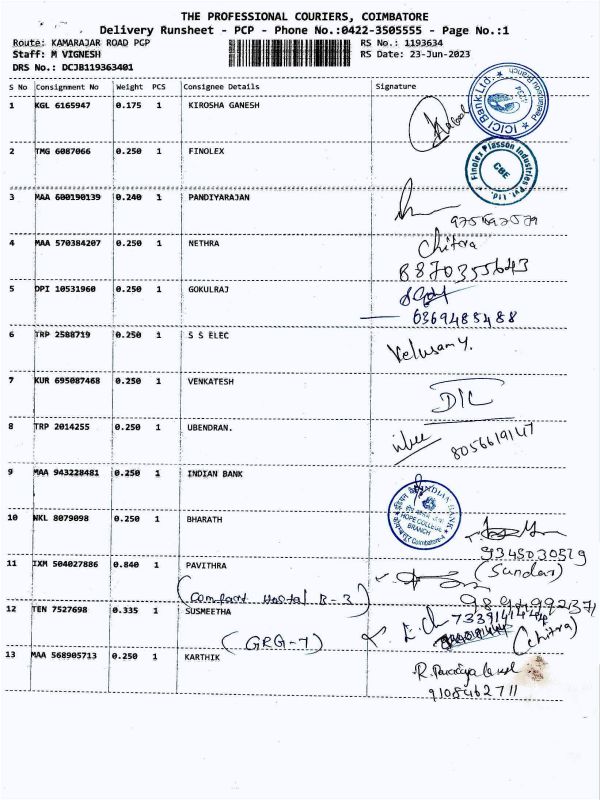 THE PROFESSIONAL COURIERS, COIMBATORE
Delivery Runsheet - PCP - Phone No.:0422-3505555 - Page No.:1
Route: KAMARAJAR ROAD PGP RS No.: 1193634
Staff: M VIGNESH RS Date: 23-Jun-2023
DRS No.: DCJB119363401
S No Consignment No Weight PCS Consignee Details Signature
1 KGL 6165947 0.175 1 KIROSHA GANESH
ICICI Bank Ltd.
2 TMG 6087066 0.250 1 FINOLEX
Finolex Plasson Industries Pvt. Ltd.
CBE
3 MAA 600190139 0.240 1 PANDIYARAJAN
4 MAA 570384207 0.250 1 NETHRA Chitra
8870355643
5 DPI 10531960 0.250 1 GOKULRAJ
6369485488
6 TRP 2588719 0.250 1 S S ELEC Velusamy.
7 KUR 695087468 0.250 1 VENKATESH D/C
8 TRP 2014255 0.250 1 UBENDRAN.
8056619147
9 MAA 943228481 0.250 1 INDIAN BANK
INDIAN BANK
HOPE COLLEGE
BRANCH
Coimbatore-4
10 NKL 8079098 0.250 1 BHARATH
9345030519
11 IXM 504027886 0.840 1 PAVITHRA (Sundar)
(Comfort Hostal B-3)
12 TEN 7527698 0.335 1 SUSMEETHA
(GRG-7) (chitra)
13 MAA 568905713 0.250 1 KARTHIK
9108462711